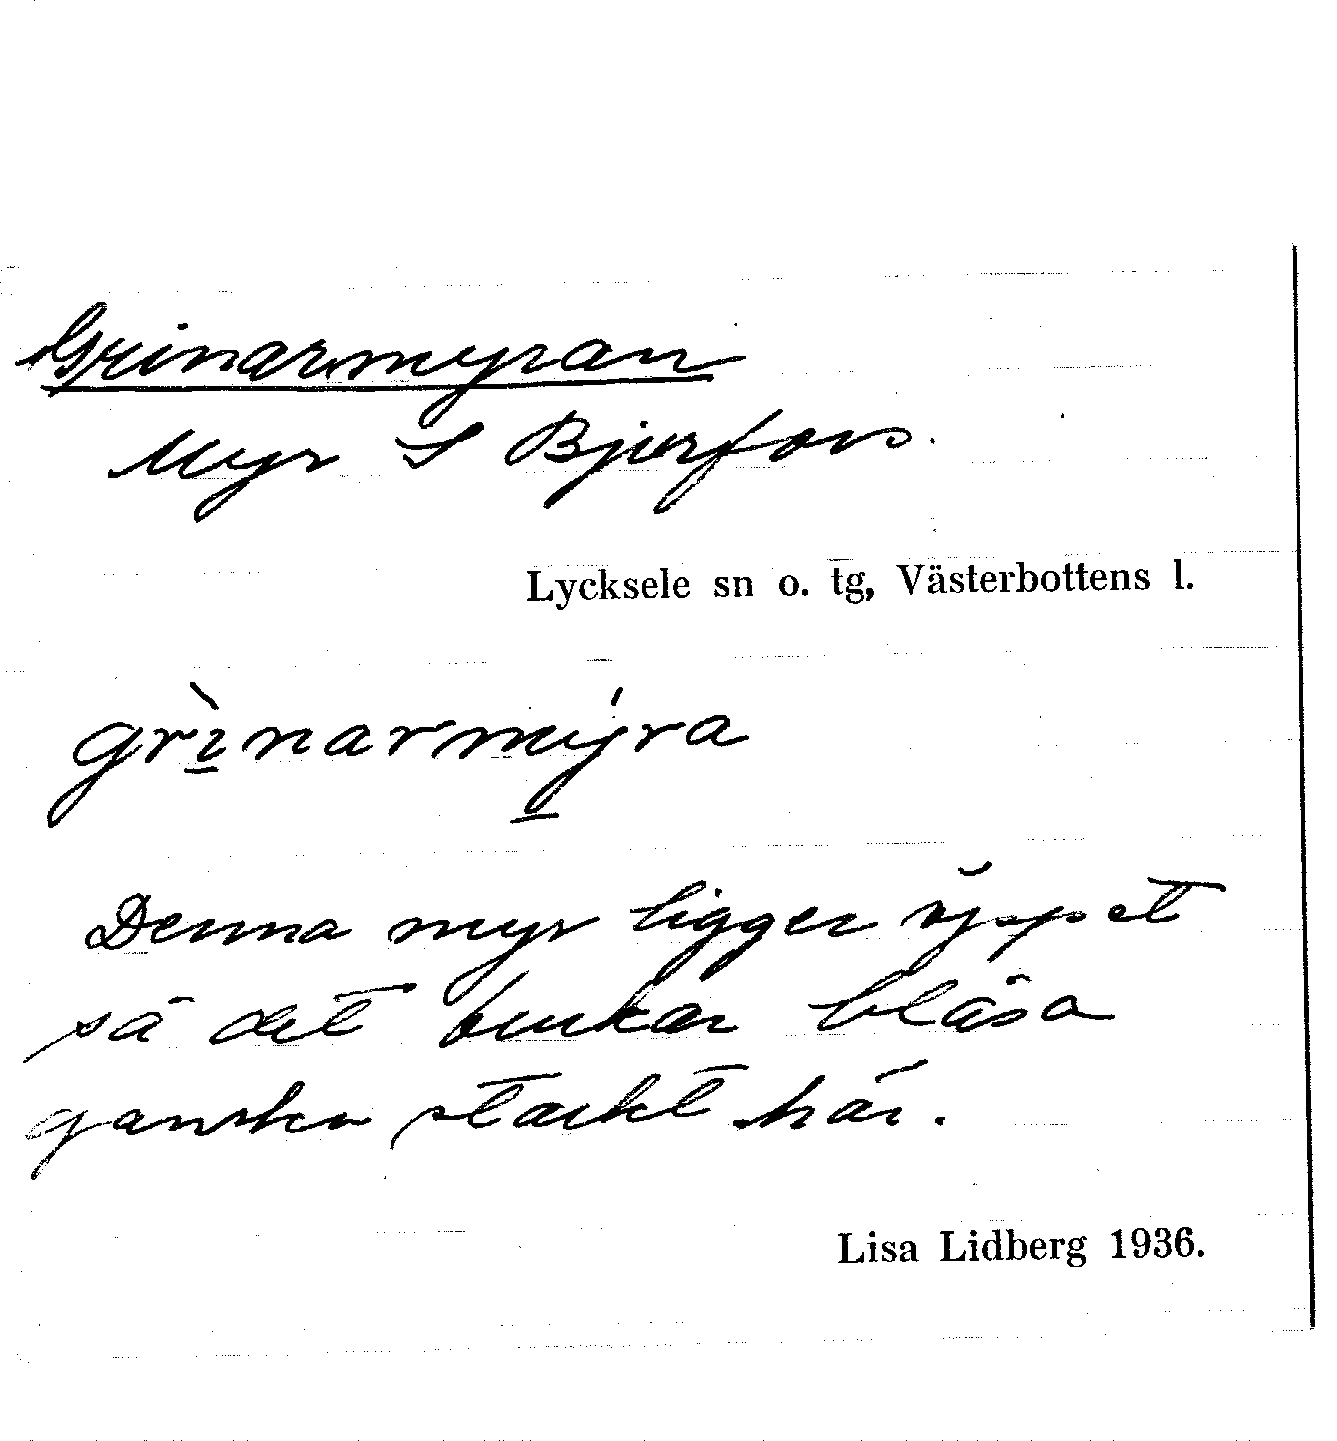 Grinarmyran
Myr S Bjurfors.
Lycksele sn o. tg, Västerbottens l.
grìnarmýra
Denna myr ligger öppet
så det brukar blåsa
ganska starkt här.
Lisa Lidberg 1936.